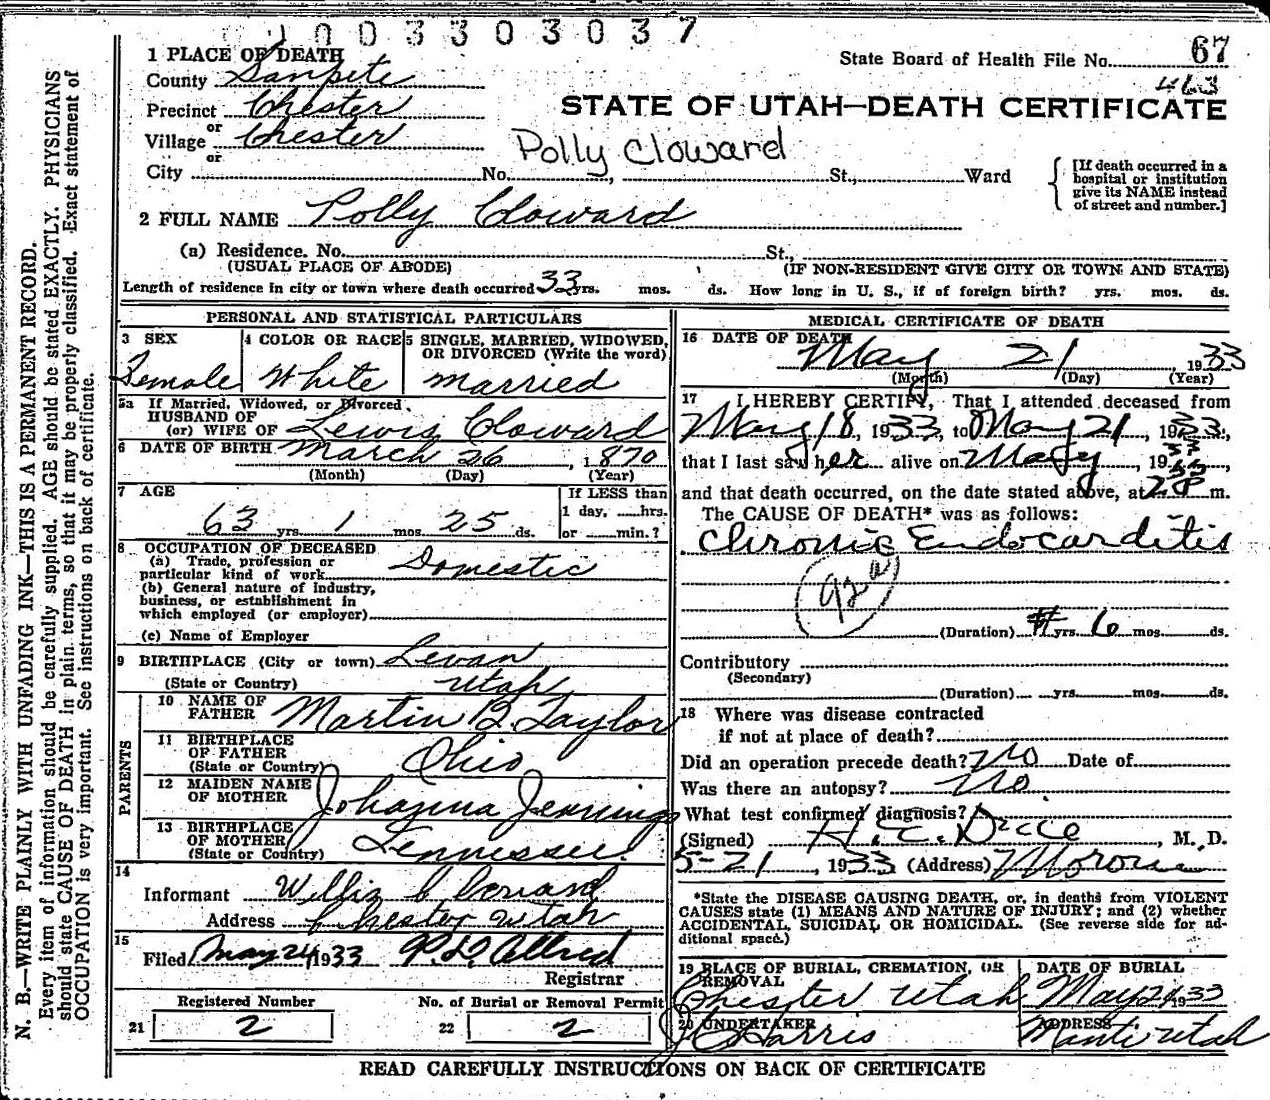 1003303037
1 PLACE OF DEATH
State Board of Health File No. 67
County Sanpete
463
Precinct Chester
STATE OF UTAH—DEATH CERTIFICATE
or
Village Chester
Polly Cloward
or
City No. , St., Ward
[If death occurred in a
hospital or institution
give its NAME instead
of street and number.]
2 FULL NAME Polly Cloward
(a) Residence. No. St.,
(USUAL PLACE OF ABODE) (IF NON-RESIDENT GIVE CITY OR TOWN AND STATE)
Length of residence in city or town where death occurred 33 yrs. mos. ds. How long in U. S., if of foreign birth? yrs. mos. ds.
PERSONAL AND STATISTICAL PARTICULARS
3 SEX
Female
4 COLOR OR RACE
White
5 SINGLE, MARRIED, WIDOWED,
OR DIVORCED (Write the word)
married
5a If Married, Widowed, or Divorced,
HUSBAND OF
(or) WIFE OF Lewis Cloward
6 DATE OF BIRTH March 26, 1870
(Month) (Day) (Year)
7 AGE
63 yrs. 1 mos. 25 ds.
If LESS than
1 day, hrs.
or min.?
8 OCCUPATION OF DECEASED
(a) Trade, profession or
particular kind of work Domestic
(b) General nature of industry,
business, or establishment in
which employed (or employer)
(c) Name of Employer
9 BIRTHPLACE (City or town) Levan
(State or Country) Utah
PARENTS
10 NAME OF
FATHER Martin B. Taylor
11 BIRTHPLACE
OF FATHER
(State or Country) Ohio
12 MAIDEN NAME
OF MOTHER Johanna Jennings
13 BIRTHPLACE
OF MOTHER
(State or Country) Tennessee
14
Informant Cloward
Address Chester Utah
15
Filed May 24 1933 P.D. Allred
Registrar
Registered Number
21 2
No. of Burial or Removal Permit
22 2
MEDICAL CERTIFICATE OF DEATH
16 DATE OF DEATH
May 21 1933
(Month) (Day) (Year)
17 I HEREBY CERTIFY, That I attended deceased from
May 18, 1933, to May 21, 1933,
that I last saw her alive on May , 1933
and that death occurred, on the date stated above, at m.
The CAUSE OF DEATH* was as follows:
Chronic Endocarditis
92a
(Duration) yrs. 6 mos. ds.
Contributory
(Secondary)
(Duration) yrs. mos. ds.
18 Where was disease contracted
if not at place of death?
Did an operation precede death? No Date of
Was there an autopsy? No.
What test confirmed diagnosis?
(Signed) H.C. , M. D.
5-21, 1933 (Address) Moroni
*State the DISEASE CAUSING DEATH, or, in deaths from VIOLENT
CAUSES state (1) MEANS AND NATURE OF INJURY; and (2) whether
ACCIDENTAL, SUICIDAL OR HOMICIDAL. (See reverse side for ad-
ditional space.)
19 PLACE OF BURIAL, CREMATION, OR
REMOVAL
Chester Utah
DATE OF BURIAL
May 24 1933
20 UNDERTAKER
Harris
ADDRESS
Manti Utah
READ CAREFULLY INSTRUCTIONS ON BACK OF CERTIFICATE
N. B.—WRITE PLAINLY WITH UNFADING INK—THIS IS A PERMANENT RECORD.
Every item of information should be carefully supplied. AGE should be stated EXACTLY. PHYSICIANS
should state CAUSE OF DEATH in plain terms, so that it may be properly classified. Exact statement of
OCCUPATION is very important. See instructions on back of certificate.